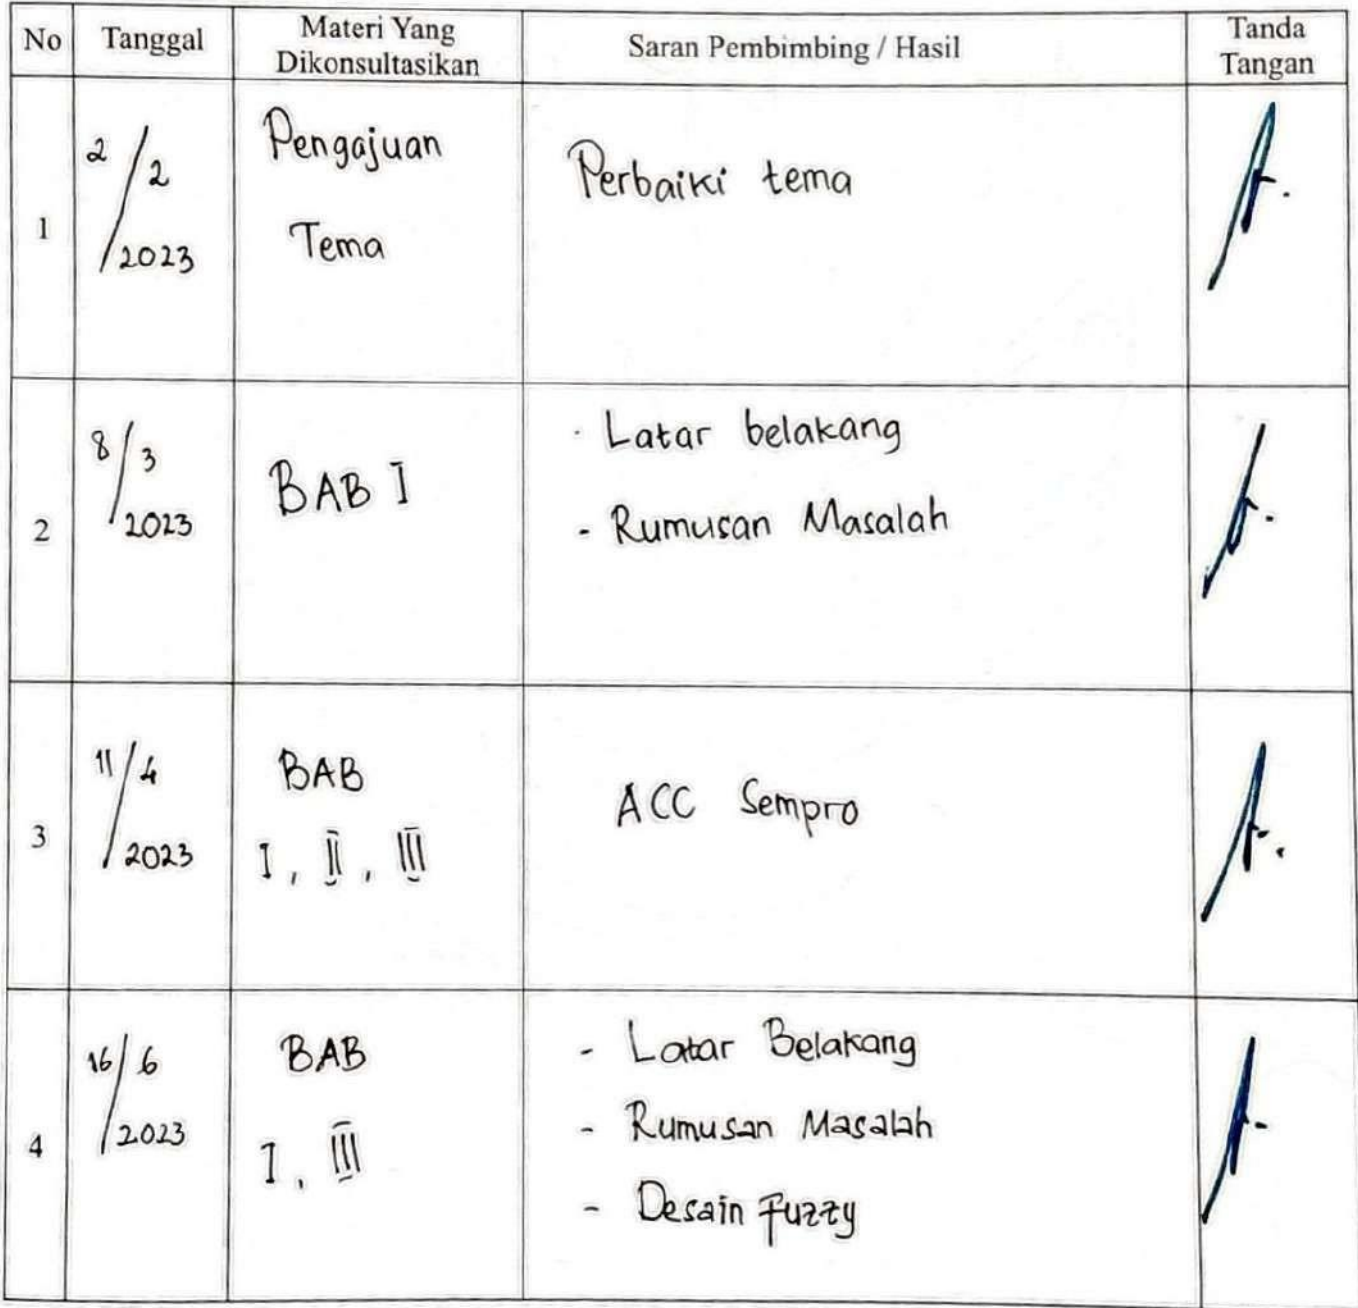 No
Tanggal
Materi Yang
Dikonsultasikan
Saran Pembimbing / Hasil
Tanda
Tangan
1
2/2
/2023
Pengajuan
Tema
Perbaiki tema
2
8/3
/2023
BAB I
- Latar belakang
- Rumusan Masalah
3
11/4
/2023
BAB
I, II, III
ACC Sempro
4
16/6
/2023
BAB
I, III
- Latar Belakang
- Rumusan Masalah
- Desain Fuzzy